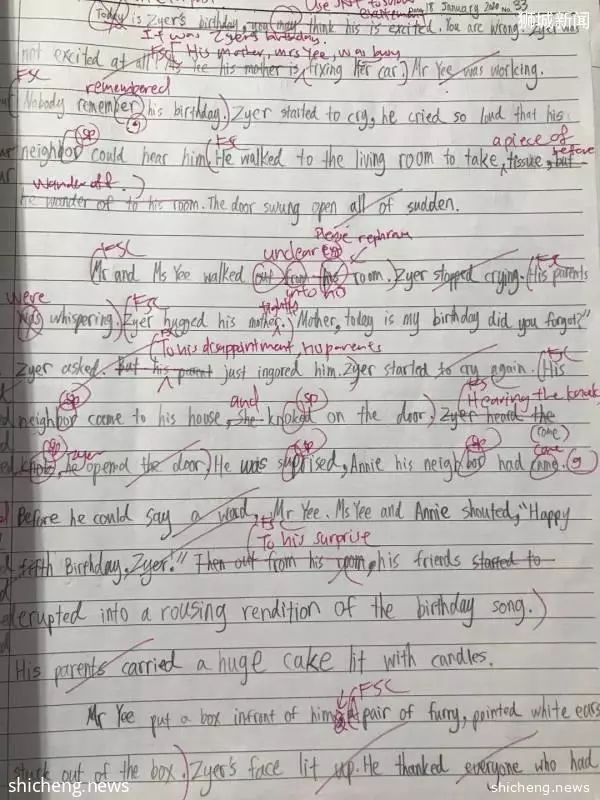 Use
18 January 2020 No. 33
狮城新闻
Today is Zyer's birthday, you may think his is excited. You are wrong. Zyer was
It was Zyer's birthday.
FSC His mother, Mrs Yee, was busy
not excited at all. As he his mother is fixing her car. Mr Yee was working.
FSC
remembered
Nobody remember his birthday. Zyer started to cry, he cried so loud that his
sp FS a piece of before
neighbor could hear him. He walked to the living room to take tissue, but
Wander off.
he wander of to his room. The door swung open all of sudden.
Please rephrase
FSC unclear exp FS
Mr and Ms Yee walked out from his room. Zyer stopped crying. His parents
into his
were FS tightly
was whispering. Zyer hugged his mother. Mother, today is my birthday did you forgot?"
FS To his disappointment, his parents
Zyer asked. But his parent just ingored him. Zyer started to cry again. His
FSC
sp and sp FS Hearing the knock
neighbor came to his house, she knoked on the door. Zyer heard the
sp Zyer sp sp come
he opernd the door. He was suprised, Annie his neighbor had g
Before he could say a word, Mr Yee. Ms Yee and Annie shouted, "Happy
FS
To his surprise
fifth Birthday, Zyer!" Then out from his room, his friends started to
erupted into a rousing rendition of the birthday song.
His parents carried a huge cake lit with candles.
FSC
Mr Yee put a box infront of him pair of furry, pointed white ears
stuck out of the box. Zyer's face lit up. He thanked everyone who had
shicheng.news
shicheng.news